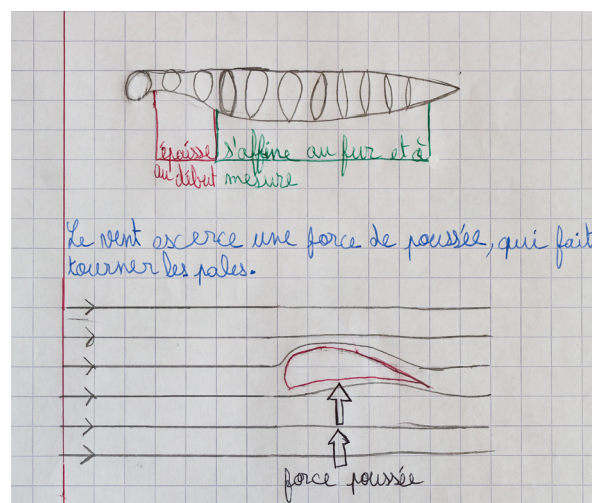 épaisse s'affine au fur et à
au début mesure
Le vent escerce une force de poussée, qui fait
tourner les pales.
force poussée